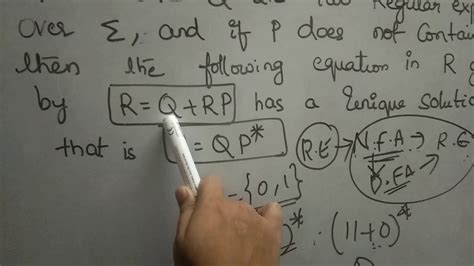 Q are two Regular exp
Over Σ, and if P does not Contain
then the following equation in R
by R = Q + RP has a Unique Solutio
that is = QP* R.E N.F.A R.E
D.FA
= {0,1}
)* : (11+0)*